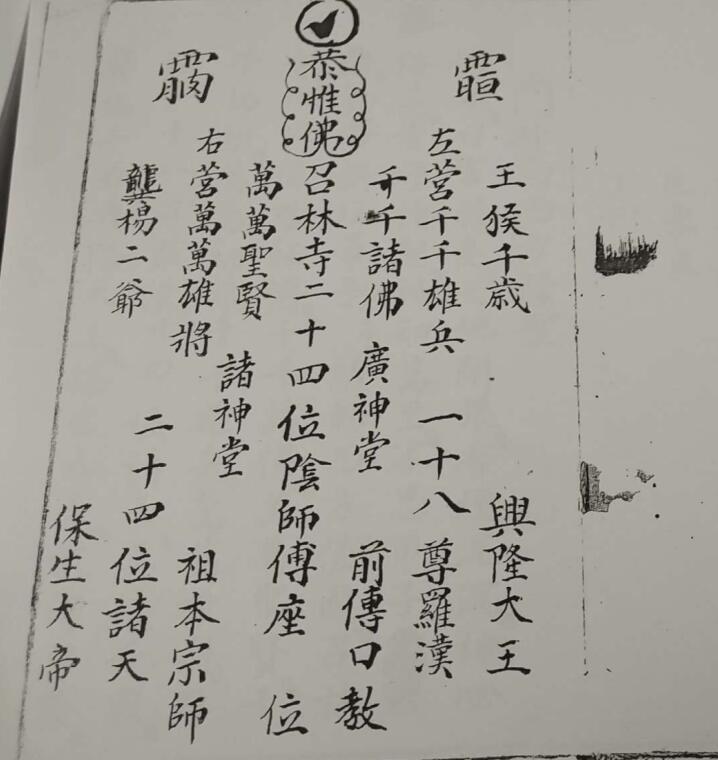 王侯千歲 興隆大王
左營千千雄兵 一十八尊羅漢
千千諸佛 廣神堂 前傳口教
恭惟佛 召林寺二十四位陰師傅座位
萬萬聖賢 諸神堂 祖本宗師
右營萬萬雄將 二十四位諸天
龔楊二爺 保生大帝